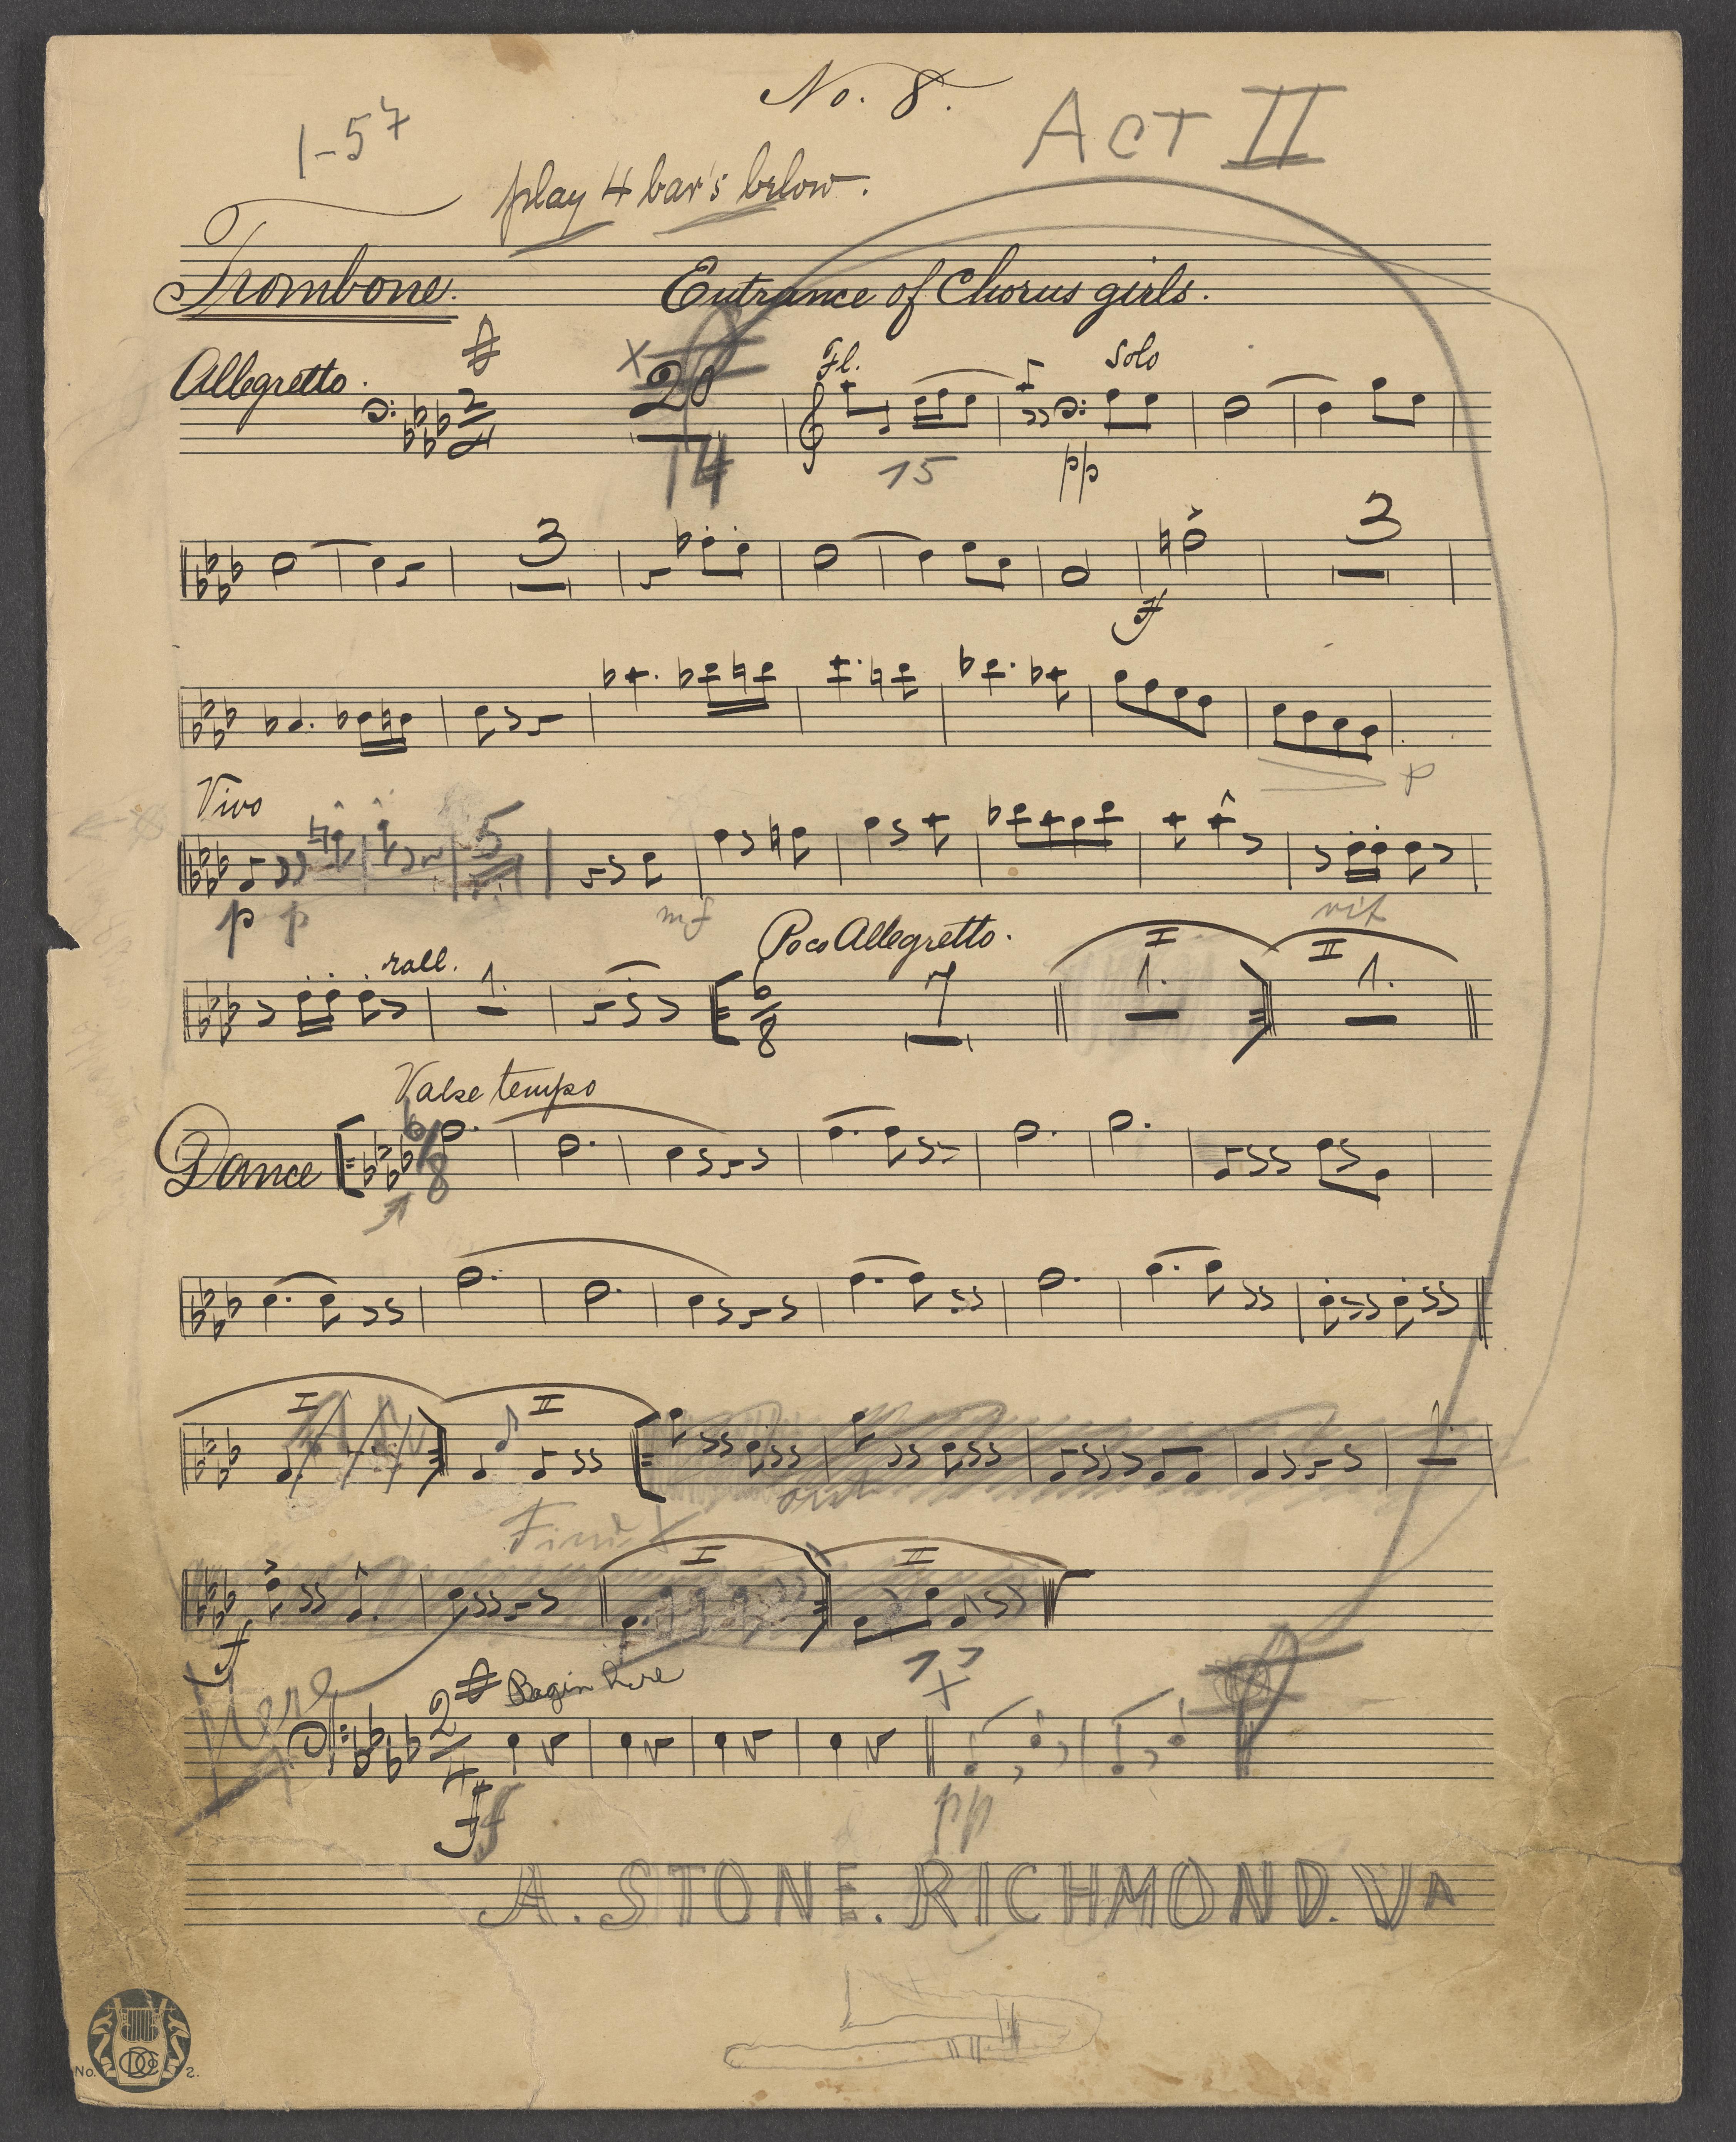 No. 8.
ACT II
1-57
play 4 bar's below.
Trombone.
Entrance of Chorus girls.
Allegretto.
20
Fl.
Solo
14
15
pp
3
3
f
p
Vivo
5
p p
mf
rit
rall.
1.
Poco Allegretto.
6/8
7
I
1.
II
1.
Valse tempo
Dance
6/8
I
II
1
out
Fine X
I
II
f
Here
Begin here
2/4
ff
pp
A. STONE. RICHMOND. VA
No. 2.